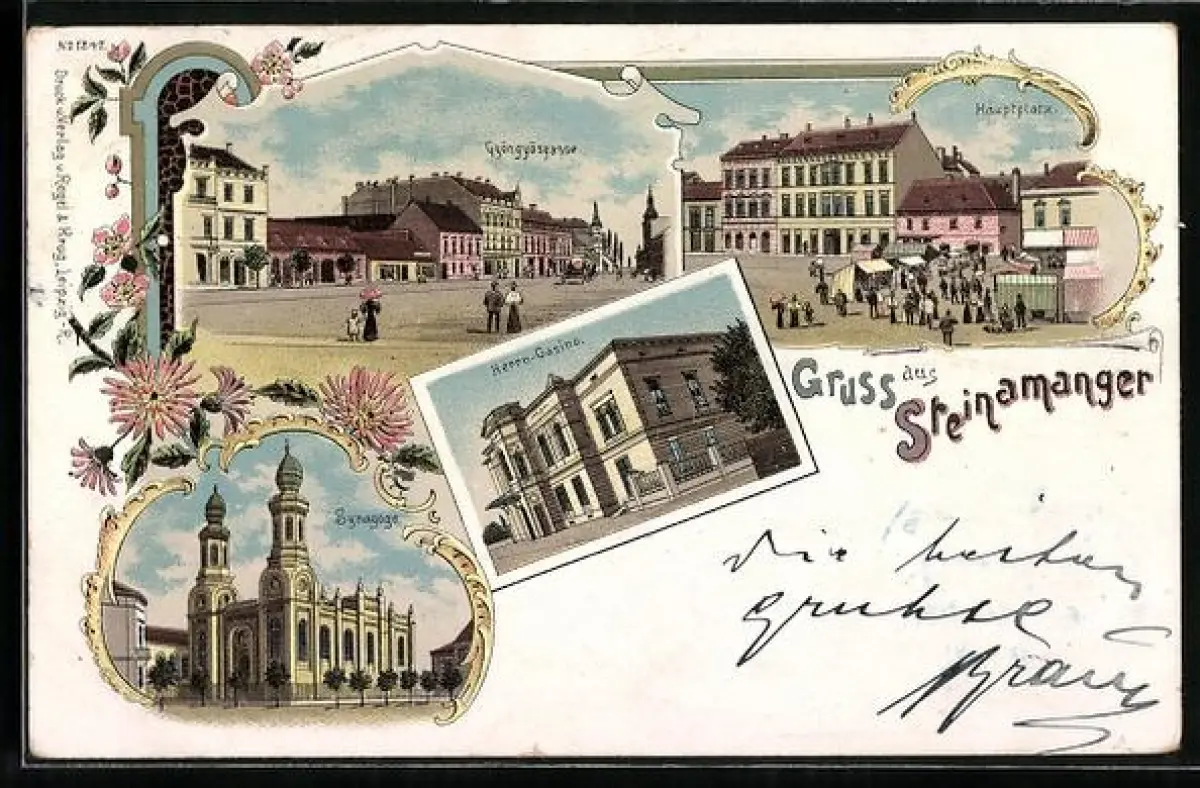 No 1247.
Druck u Verlag v Regel & Krug, Leipzig.-R.
Gyöngyösgasse
Hauptplatz.
Herrn-Casino.
Gruss aus
Steinamanger
Synagoge.
Die besten
gruhse
Braun